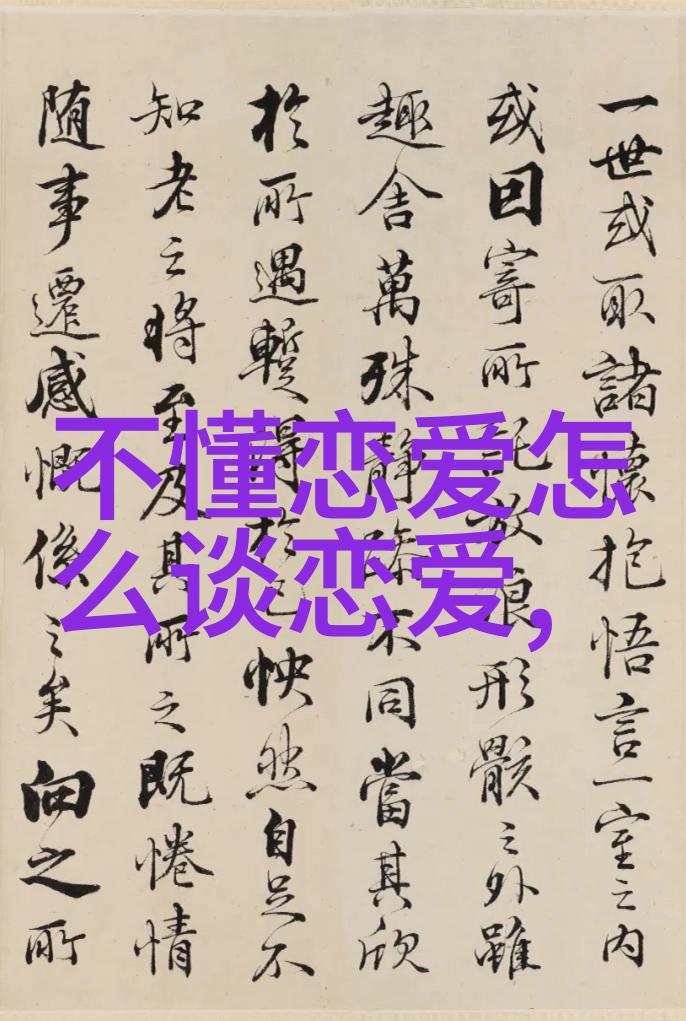 一世或取諸懷抱悟言一室之内
或因寄所託放浪形骸之外雖
趣舎萬殊静躁不同當其欣
於所遇蹔得於己怏然自足不
知老之将至及其所之既惓情
随事遷感慨係之矣向之所
不懂恋爱怎
么谈恋爱,